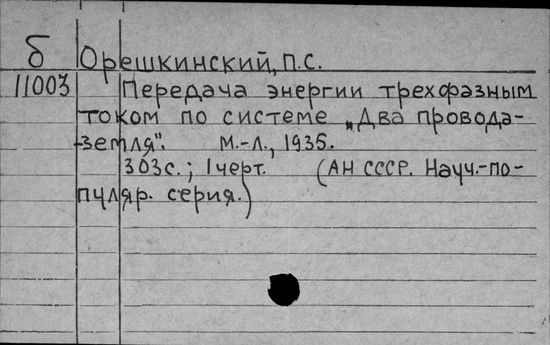 б Орешкинский, П.С.
11003 Передача энергии трехфазным
током по системе „Два провода-
-земля". М.-Л., 1935.
303с.; 1черт. (АН СССР. Науч.-по-
пуляр. серия.)